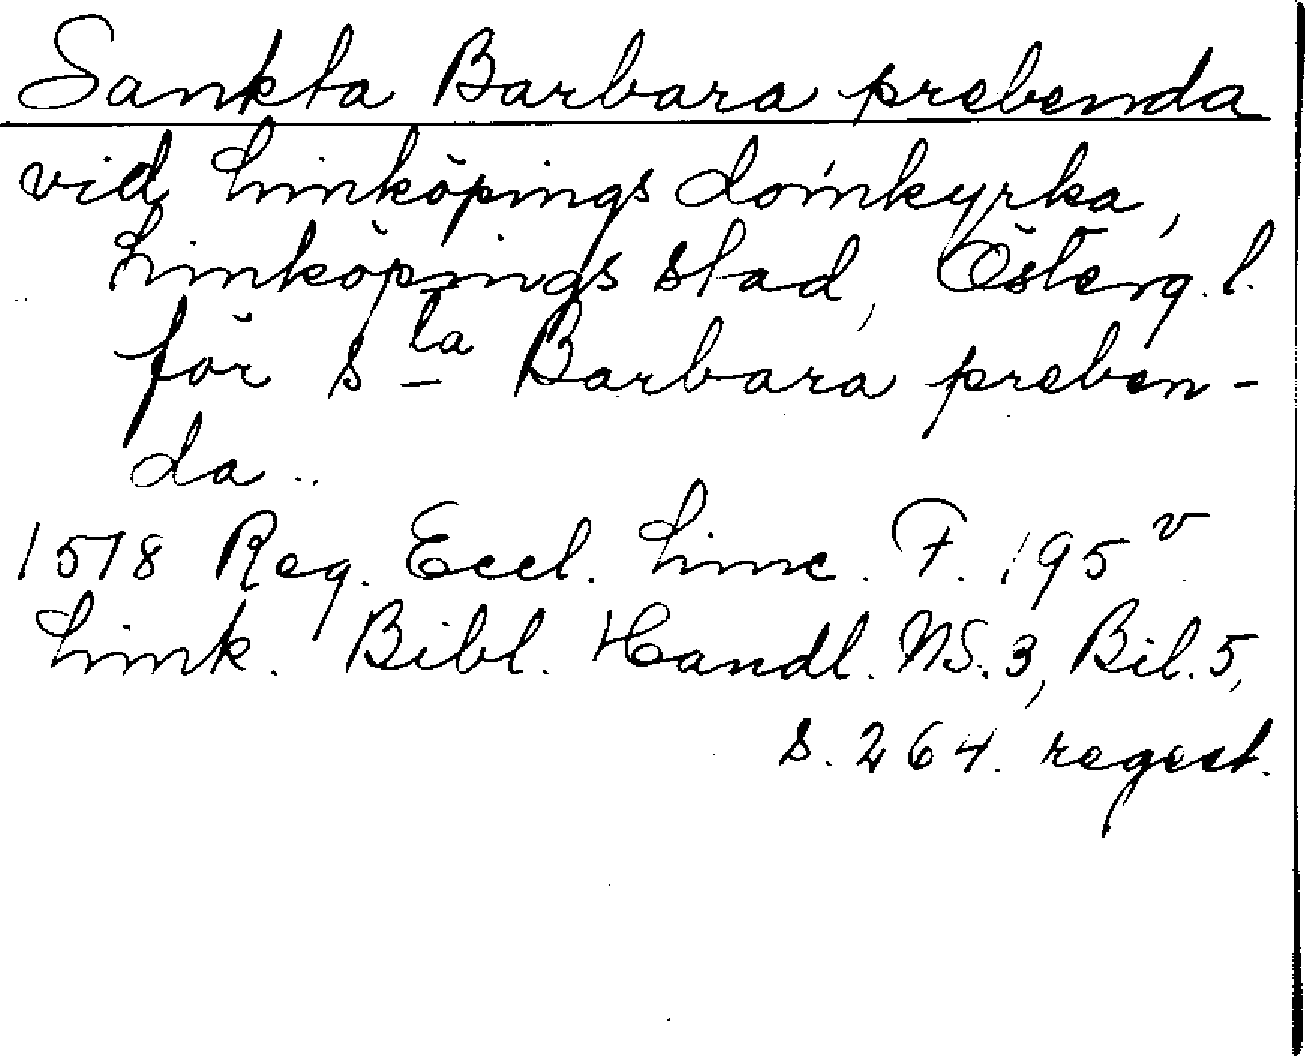 Sankta Barbara prebenda
vid Linköpings domkyrka,
Linköpings stad, Österg. l.
för s ta Barbara preben-
da ..
1578 Reg. Eccl. Linc. F. 195 v
Link. Bibl. Handl. NS. 3, Bil. 5,
s. 264. regest.